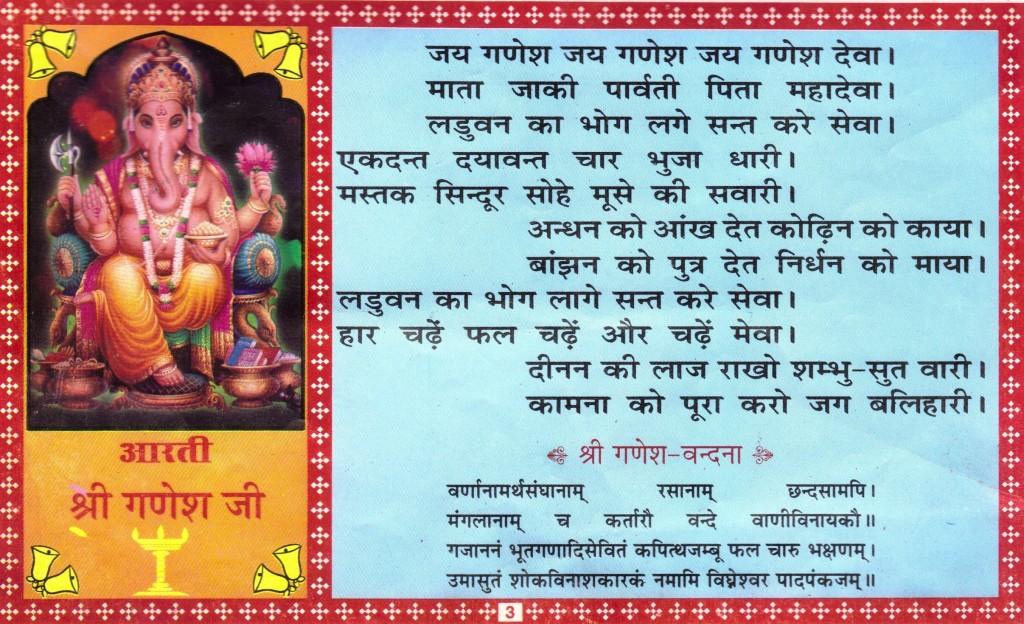 जय गणेश जय गणेश जय गणेश देवा।
माता जाकी पार्वती पिता महादेवा।
लडुवन का भोग लगे सन्त करे सेवा।
एकदन्त दयावन्त चार भुजा धारी।
मस्तक सिन्दूर सोहे मूसे की सवारी।
अन्धन को आंख देत कोढ़िन को काया।
बांझन को पुत्र देत निर्धन को माया।
लडुवन का भोग लागे सन्त करे सेवा।
हार चढ़ें फल चढ़ें और चढ़ें मेवा।
दीनन की लाज राखो शम्भु-सुत वारी।
कामना को पूरा करो जग बलिहारी।
श्री गणेश-वन्दना
वर्णानामर्थसंघानाम् रसानाम् छन्दसामपि।
मंगलानाम् च कर्तारौ वन्दे वाणीविनायकौ॥
गजाननं भूतगणादिसेवितं कपित्थजम्बू फल चारु भक्षणम्।
उमासुतं शोकविनाशकारकं नमामि विघ्नेश्वर पादपंकजम्॥
आरती
श्री गणेश जी
3